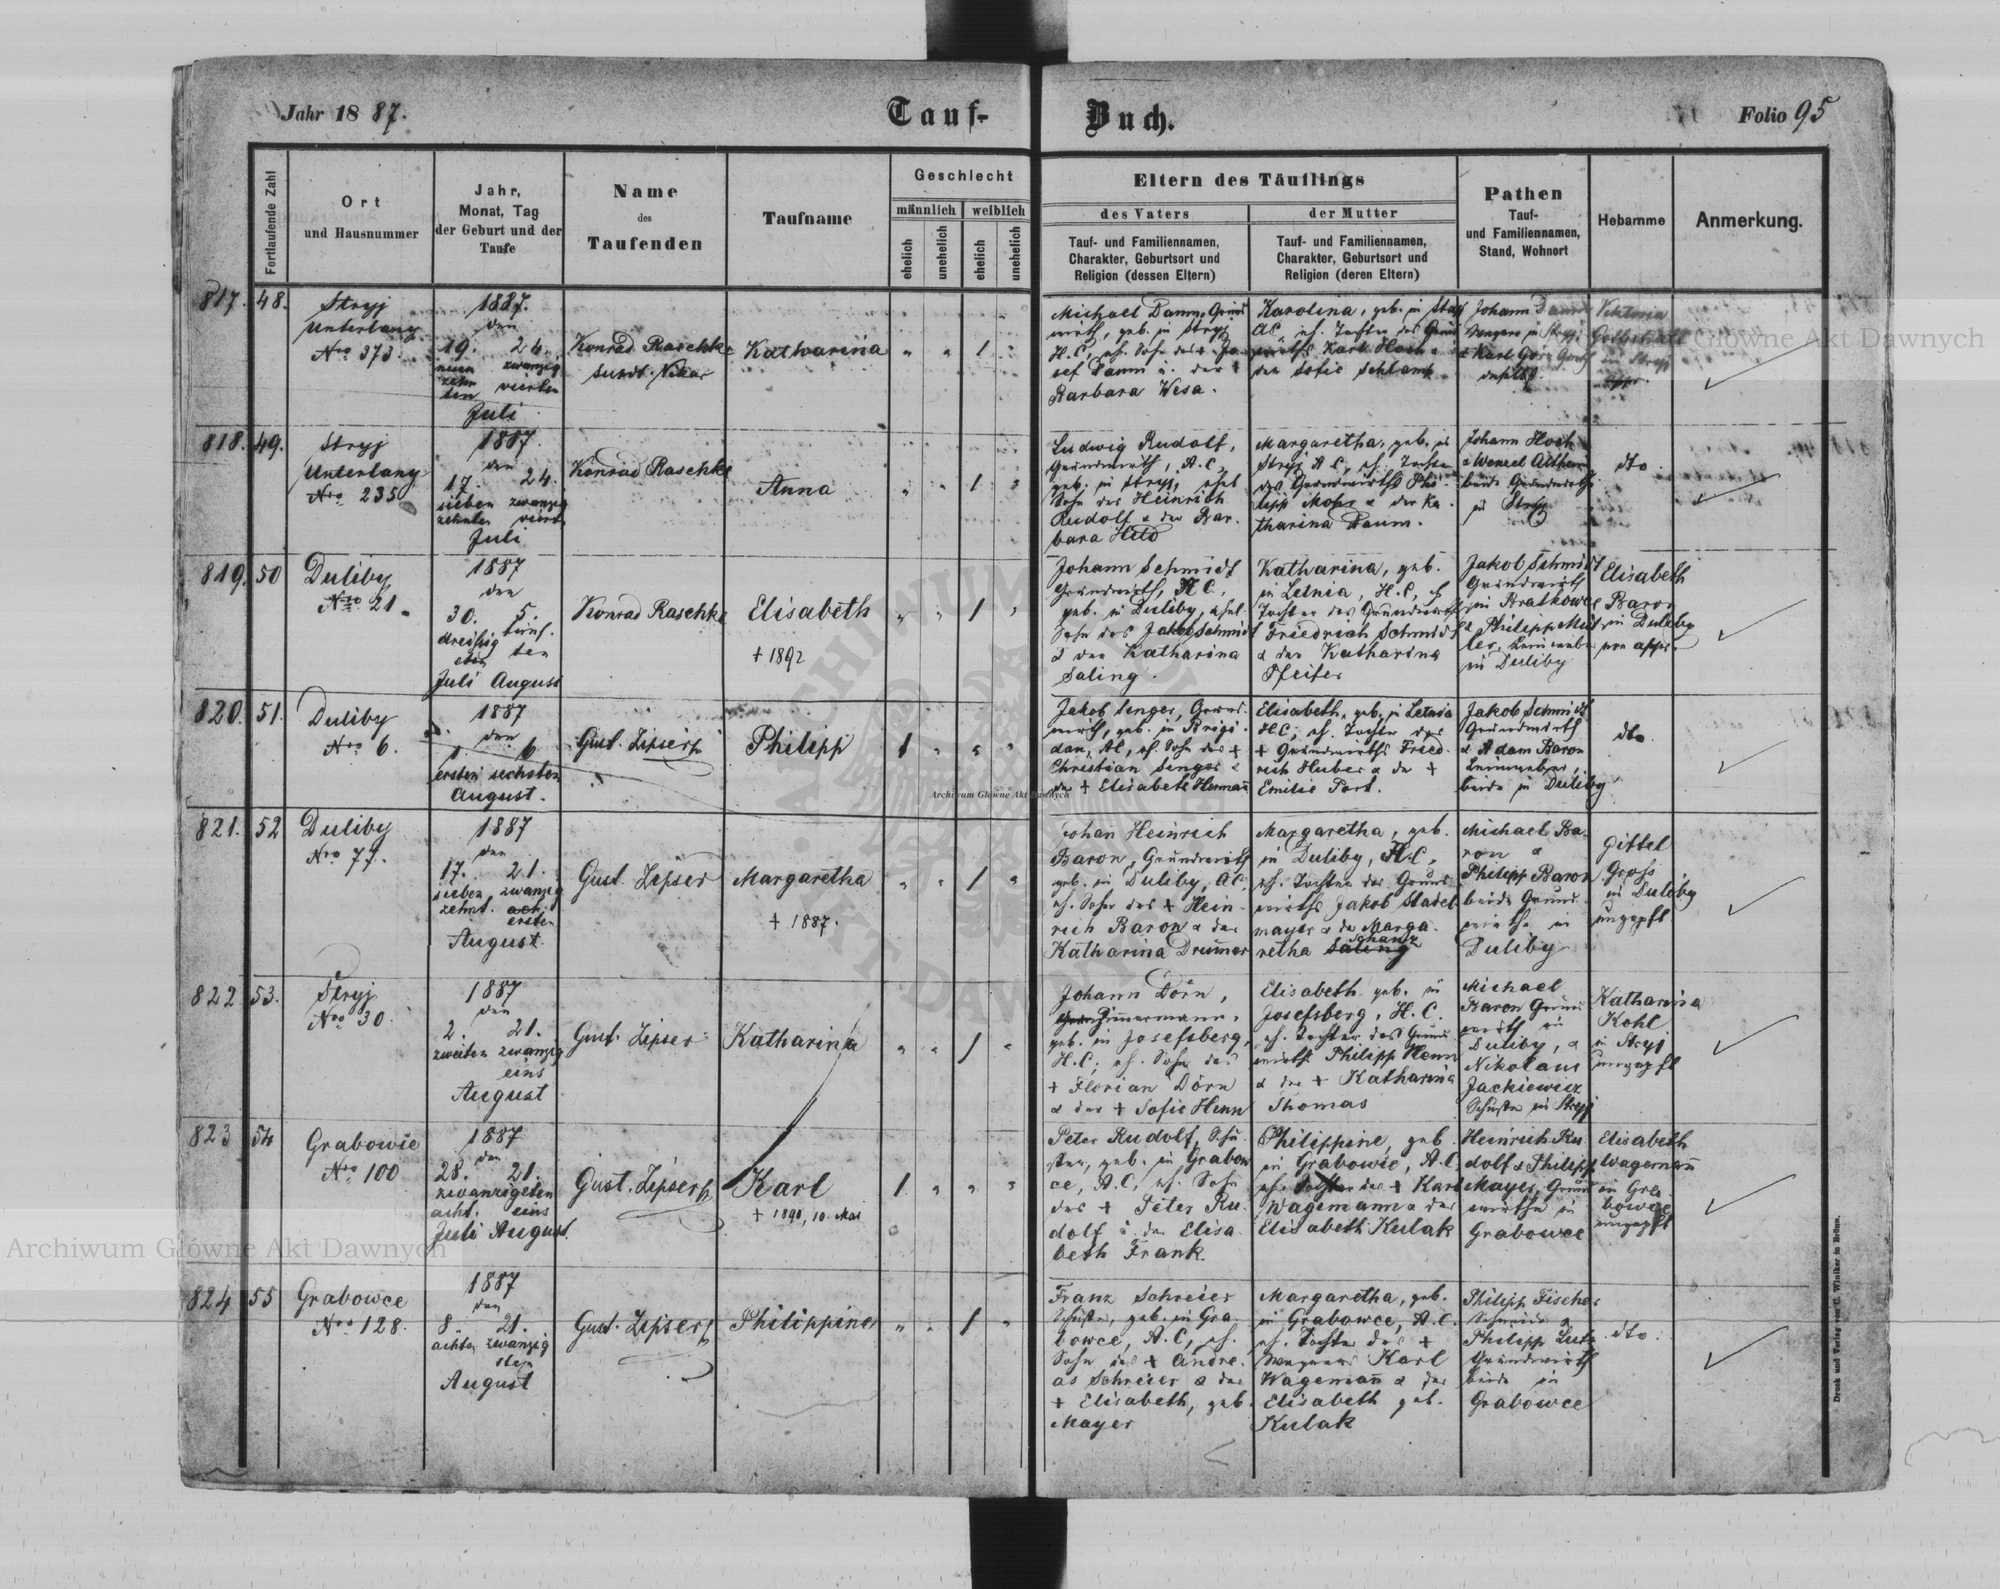 Jahr 18 87.
Tauf-
Buch.
Folio 95
Fortlaufende Zahl
Ort
und Hausnummer
Jahr,
Monat, Tag
der Geburt und der
Taufe
Name
des
Taufenden
Taufname
Geschlecht
männlich
weiblich
ehelich
unehelich
ehelich
unehelich
Eltern des Täuflings
des Vaters
Tauf- und Familiennamen,
Charakter, Geburtsort und
Religion (dessen Eltern)
der Mutter
Tauf- und Familiennamen,
Charakter, Geburtsort und
Religion (deren Eltern)
Pathen
Tauf-
und Familiennamen,
Stand, Wohnort
Hebamme
Anmerkung.
817. 48.
Stryj
Unterlany
Nro 373.
1887.
den
19. 24.
neun zwanzig
zehn vierten
ten
Juli
Konrad Raschke
Katharina
" " 1 "
Michael Daum, Grund
wirth, geb. in Stryj
H.C., eh. Sohn des + Jo
sef Daum u. der
Barbara Wesa.
Karolina, geb. in Stryj
A.C., eh. Tochter des Grund
wirths Karl Hoch
der Sofie Schlamp
Johann Daum
Wagner in Stryj
& Karl
daselbst.
Viktoria
Gottschall
in Stryj
appr.
818. 49.
Stryj
Unterlany
Nro 235
1887.
den
17. 24.
sieben zwanzig
zehnten viert
Juli
Konrad Raschke
Anna
" " 1 "
Ludwig Rudolf,
Grundwirth, A.C.,
geb. in Stryj, ehel
Sohn des Heinrich
Rudolf & der Bar.
bara Hild
Margaretha, geb. in
Stryj A.C., eh. Tochter
des Grundwirths Phi-
lipp Mohr & der Ka-
tharina Daum.
Johann Hoch
& Wenzel
beide Grundwirthe
in Stryj
dto
819. 50
Duliby
Nro 21.
1887
den
30. 5.
dreißig fünf-
sten ten
Juli August
Konrad Raschke
Elisabeth
+ 1892
" " 1 "
Johann Schmidt
Grundwirth, A.C.,
geb. in Duliby, ehel.
Sohn des Jakob Schmidt
& der Katharina
Saling.
Katharina, geb.
in Letnia, H.C., eh
Tochter des Grundwirths
Friedrich Schmidt
& der Katharina
Pfeifer
Jakob Schmidt
Grundwirth
in Bratkowce
& Philipp Mül
ler, Leinweber
in Duliby
Elisabeth
Baron
in Duliby
820. 51.
Duliby
Nro 6.
1887
den
1 6
ersten sechsten
August.
Gust. Zipser
Philipp
1 " " "
Jakob Senger, Grund-
wirth, geb. in Brigi-
dau, A.C., eh. Sohn des +
Christian Senger &
der + Elisabeth Hermañ
Elisabeth, geb. in Letnia
H.C., eh. Tochter des
+ Grundwirths Fried-
rich Huber & der +
Emilie Port.
Jakob Schmidt
Grundwirth
& Adam Baron
Leinweber,
beide in Duliby
dto
821. 52
Duliby
Nro 77.
1887
den
17. 21.
sieben zwanzig
zehnt. ach
ersten
August.
Gust. Zipser
Margaretha
+ 1887.
" " 1 "
Johan Heinrich
Baron, Grundwirth
geb. in Duliby, A.C.,
eh. Sohn des + Hein-
rich Baron & der
Katharina Drummer
Margaretha, geb.
in Duliby, H.C.,
eh. Tochter des Grund
wirths Jakob Stadel
mayer & der Marga-
retha Saling Schanz
Michael Ba-
ron &
Philipp Baron
beide Grund-
wirthe in
Duliby
Gittel
Gross
in Duliby
ungepft
822 53.
Stryj
Nro 30.
1887
den
2. 21.
zweiten zwanzig
eins
August
Gust. Zipser
Katharina
" " 1 "
Johann Dörn,
Zimmermann,
geb. in Josefsberg,
H.C., eh. Sohn des
+ Florian Dörn
& der + Sofie Henn
Elisabeth geb. in
Josefsberg, H.C.
eh. Tochter des Grund
wirths Philipp Henn
& der + Katharina
Thomas
Michael
Baron Grund
wirth in
Duliby, &
Nikolaus
Jackiewicz
Schuster in Stryj
Katharina
Kohl
in Stryj
ungepft
823 54
Grabowie
Nro 100
1887
den
28. 21.
zwanzigsten
acht. eins
Juli August.
Gust. Zipser
Karl
+ 1890, 10. Mai
1 " " "
Peter Rudolf, Schu
ster, geb. in Grabow
ce, A.C., eh. Sohn
des + Peter Ru-
dolf & der Elisa
beth Frank.
Philippine, geb
in Grabowie, A.C.
eh. Tochter des + Karl
Wagemann & der
Elisabeth Kulak
Heinrich Ru
dolf & Philipp
Mayer, Grund
wirthe in
Grabowce
Elisabeth
Wagemañ
in Gra
bowce
ungepft
824 55
Grabowce
Nro 128.
1887
den
8 21.
achten zwanzig
sten
August
Gust. Zipser
Philippine
" " 1 "
Franz Schreier
Schuster, geb. in Gra
bowce, A.C., eh.
Sohn des + Andre-
as Schreier & der
+ Elisabeth, geb.
Mayer
Margaretha, geb.
in Grabowce, A.C.
eh. Tochter des +
Wagners Karl
Wagemañ & der
Elisabeth geb.
Kulak
Philipp Fischer
Schneider &
Philipp Lutz
Grundwirth
beide in
Grabowce
dto.
Druck und Verlag von C. Winiker in Brünn.
Archiwum Główne Akt Dawnych
Archiwum Główne Akt Dawnych
Archiwum Główne Akt Dawnych